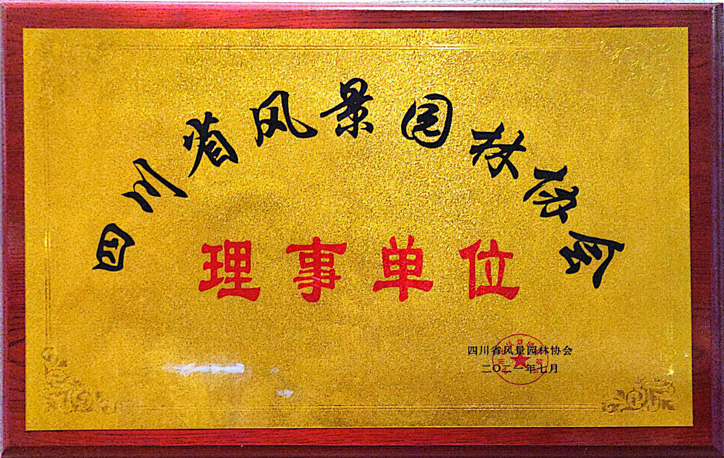 四川省风景园林协会
理事单位
四川省风景园林协会
二〇二一年七月